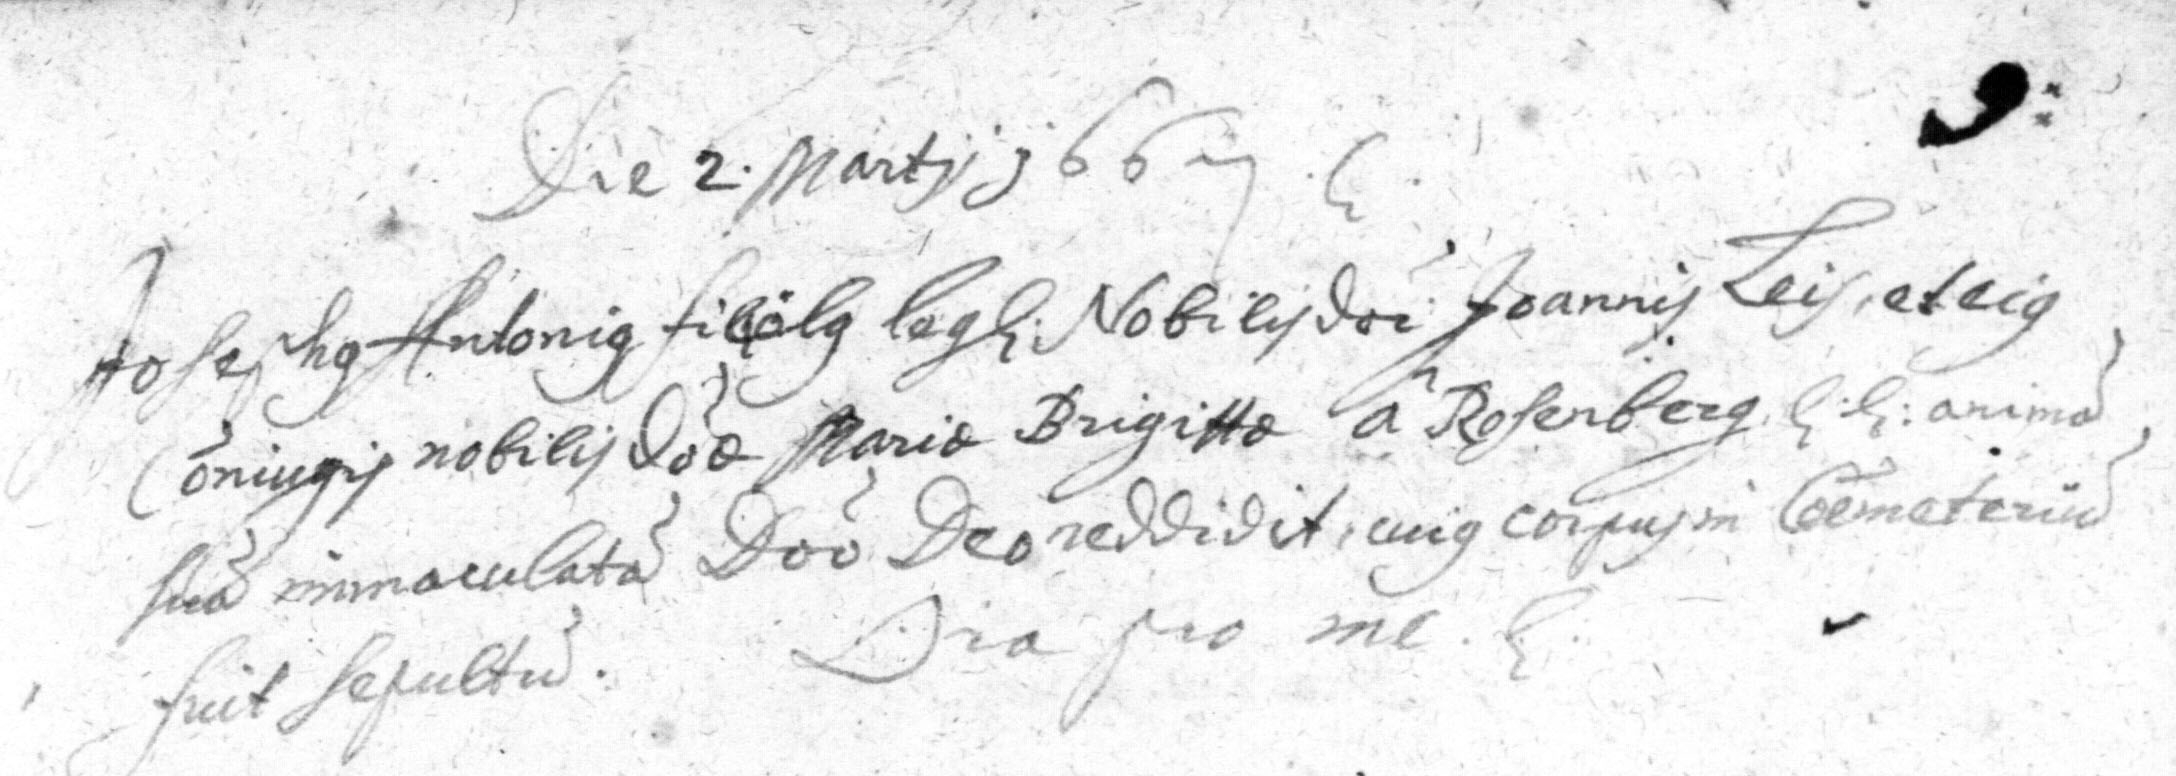 9:
Die 2. Martij 1667. &.
Josephꝯ Antoniꝯ filiolꝯ leg&: Nobilis Doi Joannis Leis, et eiꝯ
Cōniugis nobilis Doæ Mariæ Brigittæ â Rosenberg &.&. animā
suā immaculatā Doō Deo reddidit, cuiꝯ corpus in Coemeteriū
fuit sepultū. Ora pro me. &.